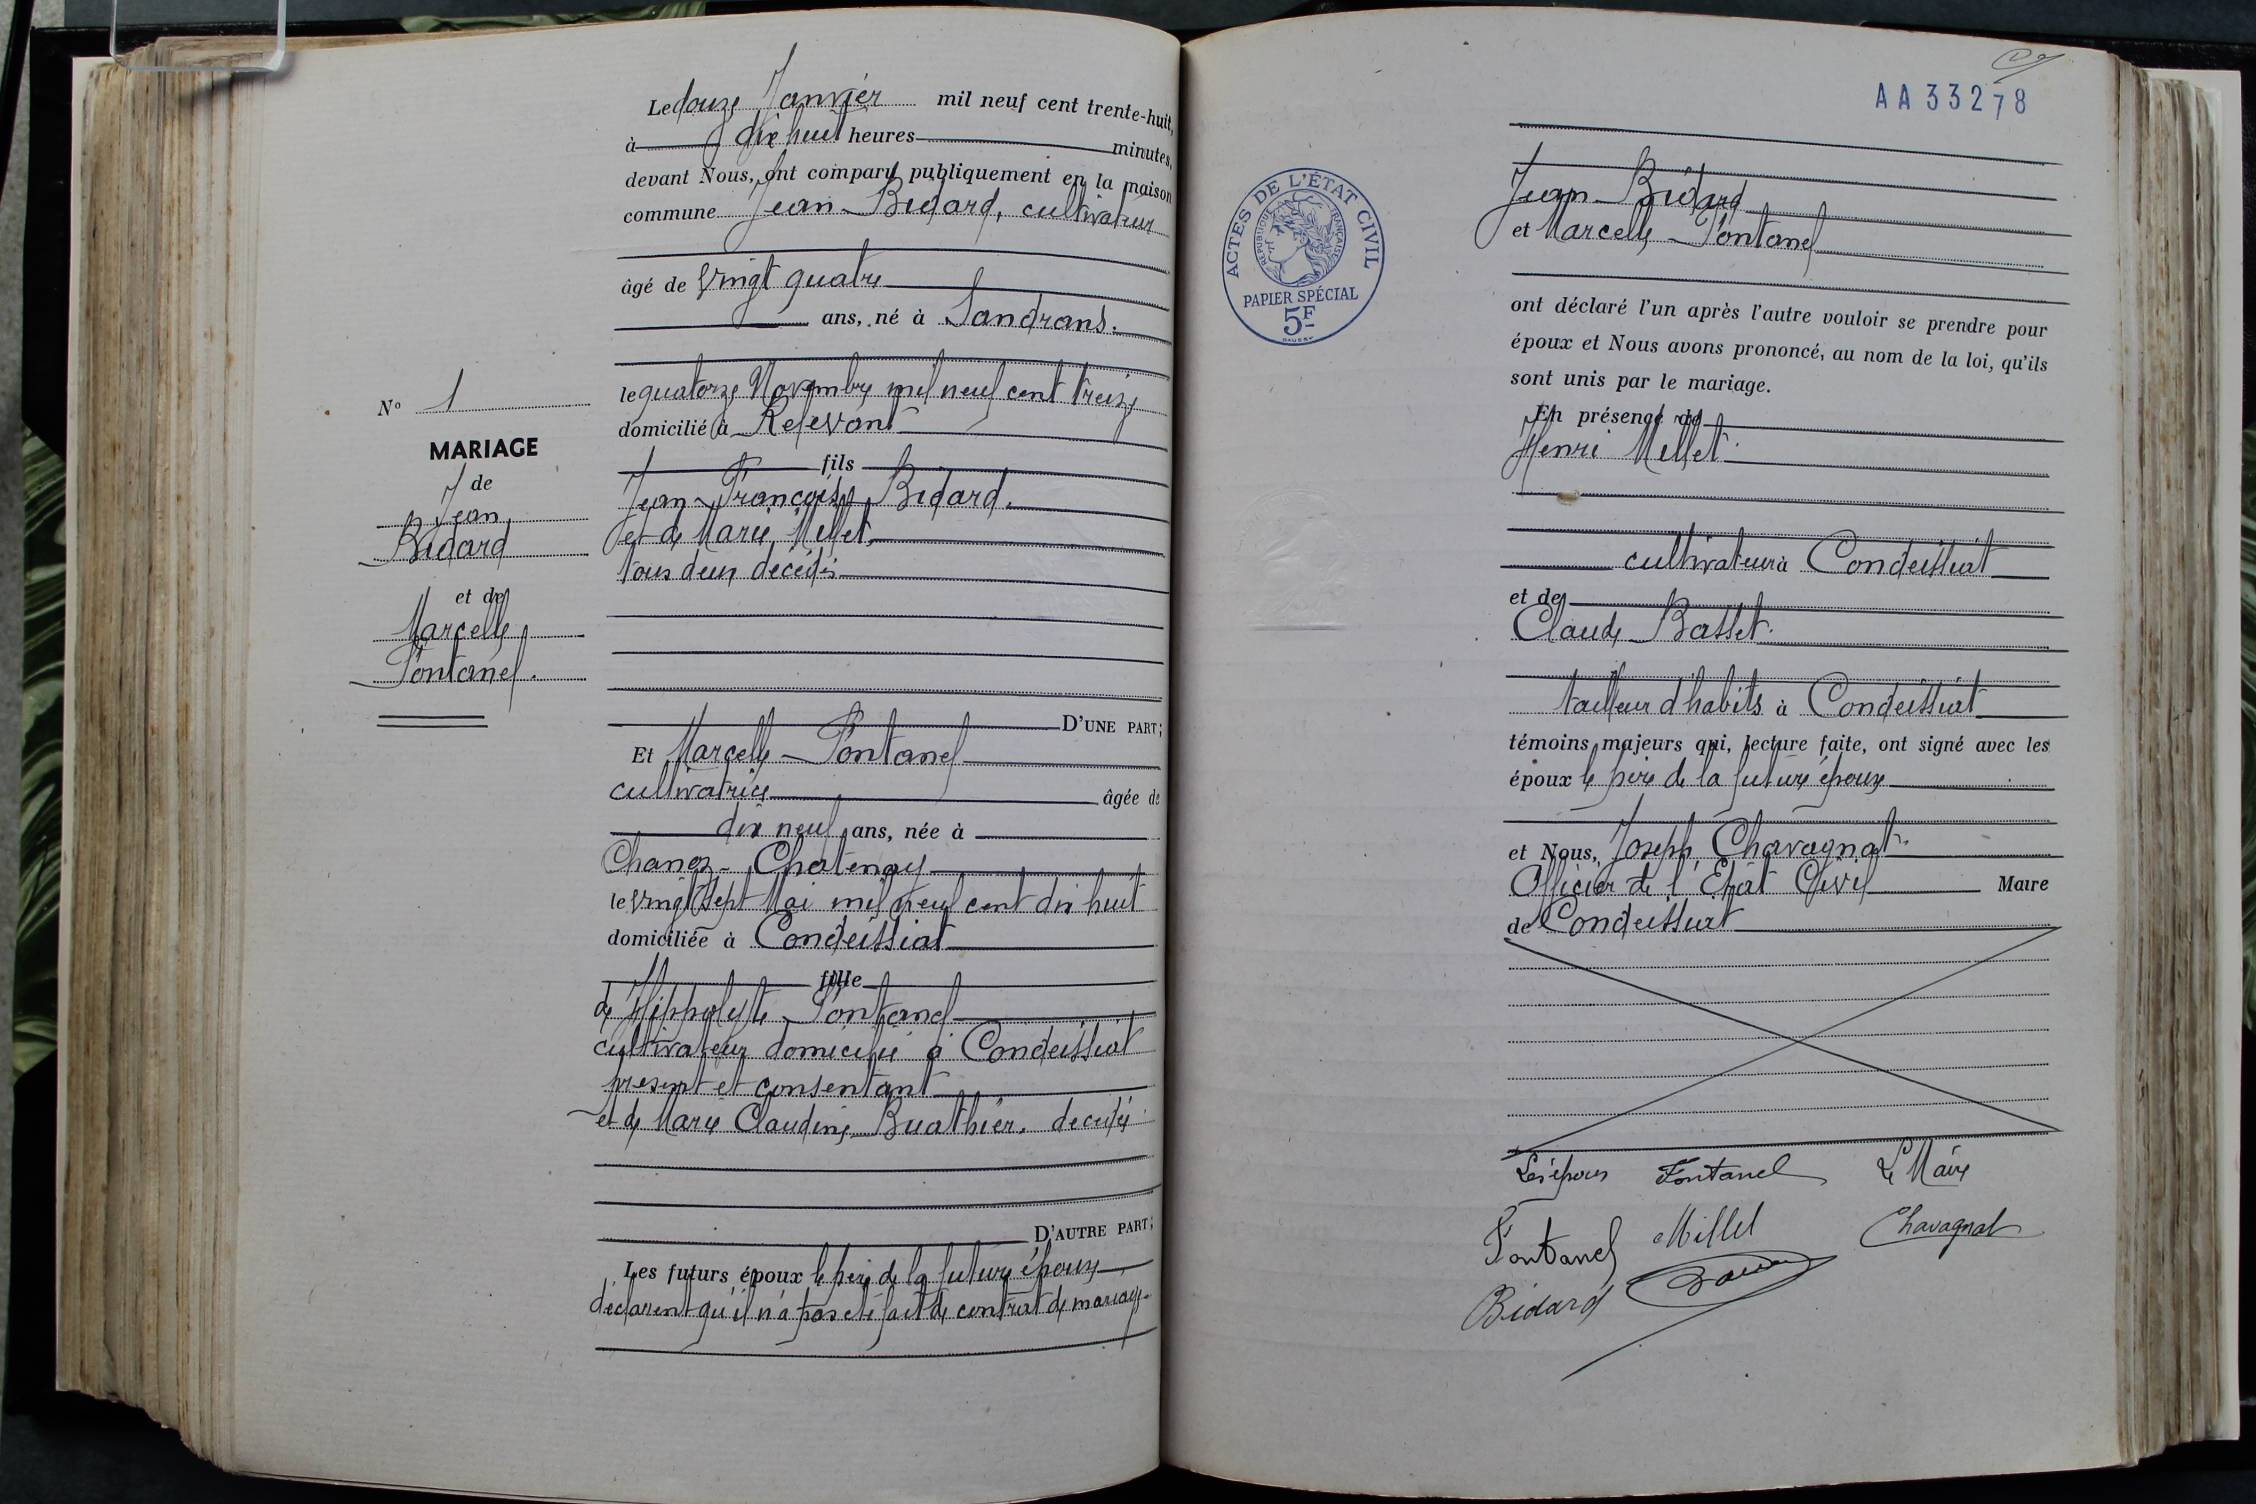 Le douze Janvier mil neuf cent trente-huit,
à dix huit heures minutes,
devant Nous, ont comparu publiquement en la maison
commune Jean Bidard, cultivateur
âgé de vingt quatre
ans, né à Sandrans.
le quatorze Novembre mil neuf cent treize
domicilié à Relevant
fils
Jean-François Bidard.
et de Marie Millet,
tous deux décédés
D'UNE PART;
Et Marcelle Fontanel
cultivatrice âgée de
dix neuf ans, née à
Chanoz-Chatenay
le vingt sept Mai mil neuf cent dix huit
domiciliée à Condeissiat
fille
de Hippolyte Fontanel
cultivateur domicilié à Condeissiat
présent et consentant
et de Marie Claudine Buathier, décédée
D'AUTRE PART;
Les futurs époux le père de la future épouse
déclarent qu'il n'a pas été fait de contrat de mariage
N° 1
MARIAGE
de
Jean
Bidard
et de
Marcelle
Fontanel.
AA33278
ACTES DE L'ÉTAT CIVIL
RÉPUBLIQUE FRANÇAISE
PAPIER SPÉCIAL
5F
Jean Bidard
et Marcelle Fontanel
ont déclaré l'un après l'autre vouloir se prendre pour
époux et Nous avons prononcé, au nom de la loi, qu'ils
sont unis par le mariage.
En présence de
Henri Millet
cultivateur à Condeissiat
et de
Claude Basset.
tailleur d'habits à Condeissiat
témoins majeurs qui, lecture faite, ont signé avec les
époux le père de la future épouse
et Nous, Joseph Chavagnat.
Officier de l'Etat Civil Maire
de Condeissiat
Les époux Fontanel Le Maire
Fontanel Millet Chavagnat
Bidard